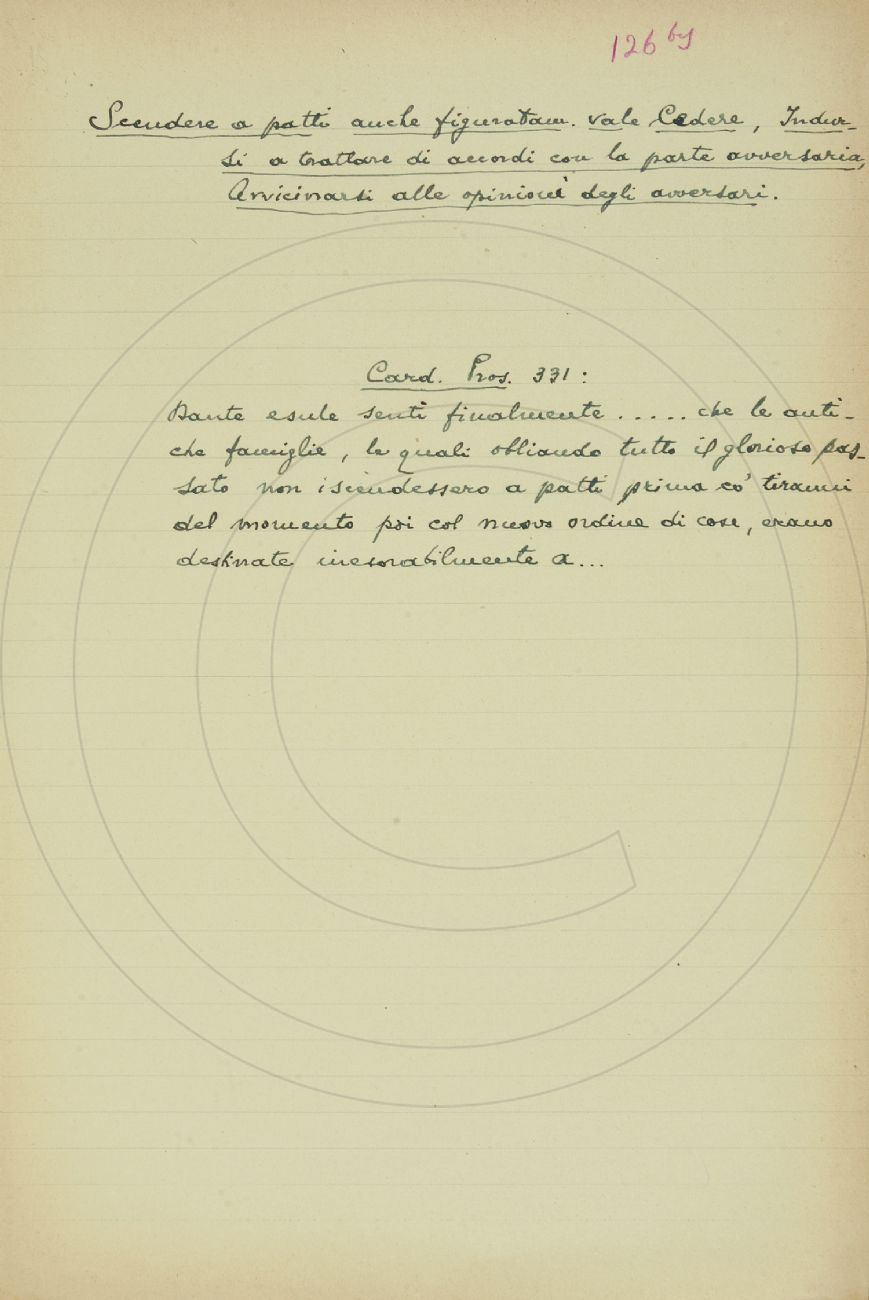 126 by
Scendere a patti anche figuratam. vale Cedere, Indur-
si a trattare di accordi con la parte avversaria,
Avvicinarsi alle opinioni degli avversari.
Card. Pros. 331:
Dante esule sentì finalmente ..... che le anti-
che famiglie, le quali obliando tutto il glorioso pas-
sato non iscendessero a patti prima co' tiranni
del momento poi col nuovo ordine di cose, erano
destinate inesorabilmente a...